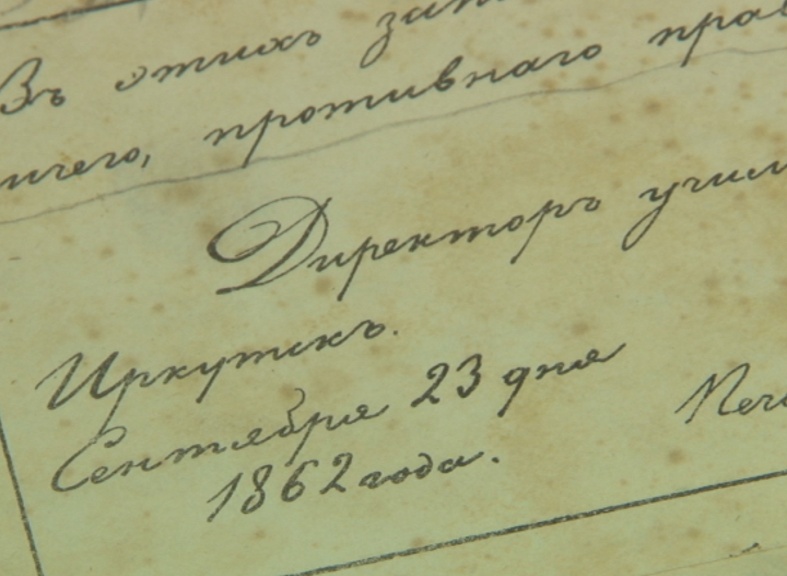 Въ этихъ
ничего, противнаго
Директоръ
Иркутскъ.
Сентября 23 дня
1862 года.